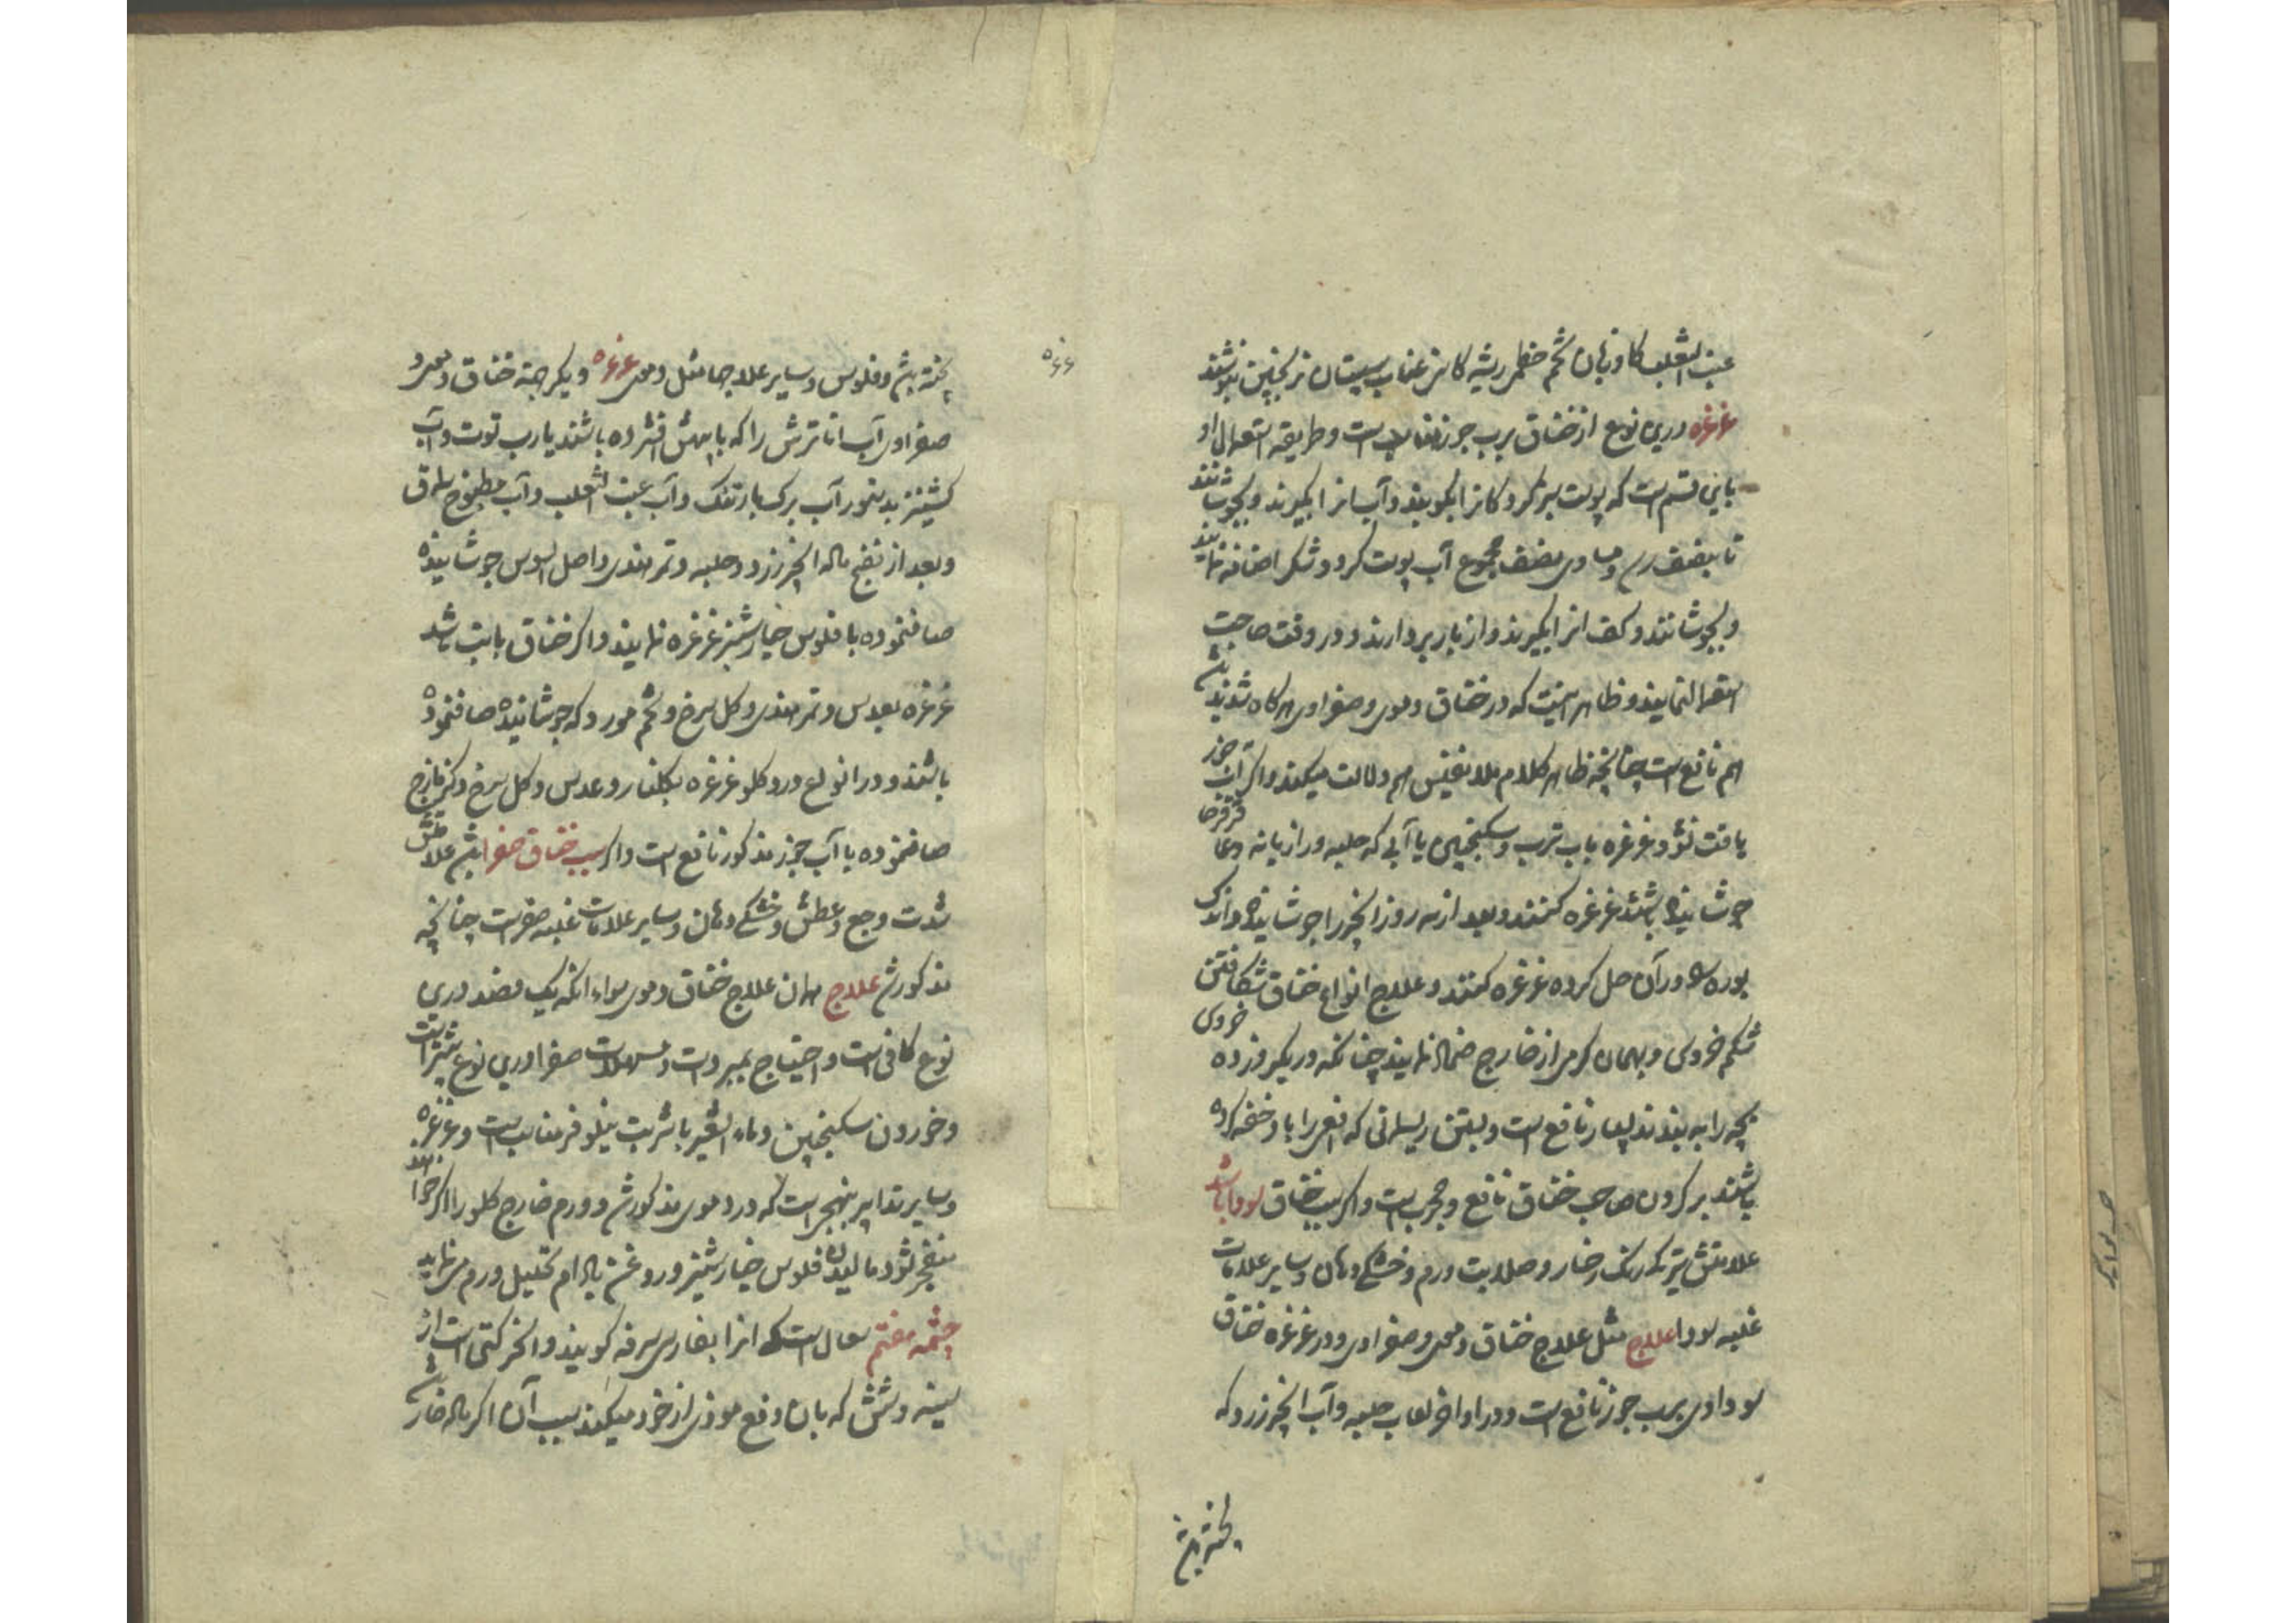 عنب الثعلب کاوزبان تخم خطمی ریشه کاسنی عناب سپستان ترنجبین بنوشند
غرغره درین نوع از خناق برب جوز مناسب است و طریقه استعمال او
باین قسم است که پوست سبز کردکانرا بکوبند و آب انرا بکیرند و بجوشانند
تا بنصف رسد و مساوی نصف مجموع آب پوست کردو شکر اضافه نمایند
و بجوشانند و کف انرا بکیرند و از بار بردارند و در وقت حاجت
استعمال نمایند و ظاهر اینست که در خناق دموی و صفراوی هرکاه شدید باشد
هم نافع است چنانچه ظاهر کلام ملا نفیس هم دلالت میکند و اکر آب جوز
یافت نشود غرغره باب ترب و سکنجبین یا آبی که حلبه و رازیانه و عاقرقرحا
جوشانیده باشند غرغره کنند و بعد از سه روز انجیر را جوشانیده و اندک
بوره در آن حل کرده غرغره کنند و علاج انواع خناق شکافتن
شکم خروس و بهمان کرمی از خارج ضماد نمایند چنانکه در یکروز ده خروس
بچه را به بندند بسیار نافع است و بستن ریسمانی که افعی را باو خفه کرده
باشند بر کردن صاحب خناق نافع و مجرب است و اکر سبب خناق سودا باشد
علامتش تیرکی رنک رخسار و صلابت ورم و خشکی دهان و سایر علامات
غلبه سودا علاج مثل علاج خناق دموی و صفراوی و در غرغره خناق
سوداوی برب جوز نافع است و در اواخر لعاب حلبه و آب انجیر زرد که
پخته باشند
غرغره
پخته باشند و فلوس و سایر علاجها مثل دموی غرغره دیکر جهة خناق دموی و
صفراوی آب انار ترش را که با پیهش افشرده باشند یا رب توت و آب
کشنیز بدستور آب برک بارتنک و آب عنب الثعلب و آب مطبوخ سماق
و بعد از نضج ماده انجیر زرد و حلبه و تمر هندی و اصل السوس جوشانیده
صاف نموده با فلوس خیارشنبر غرغره نمایند و اکر خناق باتب باشد
غرغره بعدس و تمر هندی و کل سرخ و تخم مورد که جوشانیده صاف نموده
باشند و در انواع درد کلو غرغره بکلنار و عدس و کل سرخ و کزمازج
صاف نموده با آب جوز مذکور نافع است و اکر سبب خناق صفرا باشد علامتش
شدت وجع و عطش و خشکی دهان و سایر علامات غلبه صفراست چنانچه
مذکور شد علاج همان علاج خناق دموی سواء انکه یک فصد درین
نوع کافی است و احتیاج بمبردات و مسهلات صفرا درین نوع بیشتر است
و خوردن سکنجبین و ماء الشعیر با شربت نیلوفر مناسب است و غرغره
و سایر تدابیر بنهجی است که در دموی مذکور شد و ورم خارج کلو را اکر خواهند
منفجر نشود مالیدن فلوس خیارشنبر و روغن بادام تحلیل ورم می نماید
چشمه هفتم سعال است که انرا بفارسی سرفه کویند و ان حرکتی است از
سینه و شش که بان دفع موذی از خود میکند سبب آن اکر ماده خارج باشد